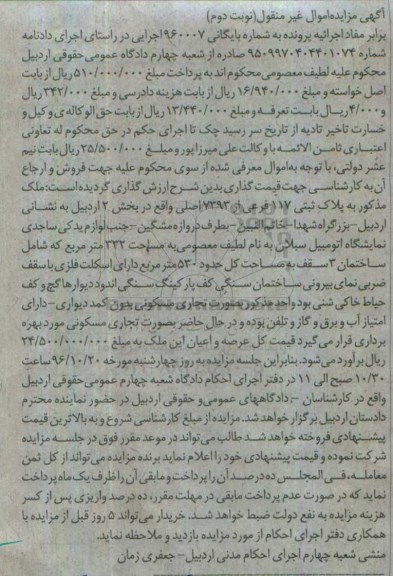 آگهی مزایده اموال غیر منقول(نوبت دوم)
برابر مفاد اجرائیه پرونده به شماره بایگانی ۹۶۰۰۰۷ اجرایی در راستای اجرای دادنامه
شماره ۹۵۰۹۹۷۰۴۰۴۴۰۱۰۷۴ صادره از شعبه چهارم دادگاه عمومی حقوقی اردبیل
محکوم علیه لطیف معصومی محکوم اند به پرداخت مبلغ ۵۱۰/۰۰۰/۰۰۰ ریال از بابت
اصل خواسته و مبلغ ۱۶/۹۴۰/۰۰۰ ریال از بابت هزینه دادرسی و مبلغ ۳۴۲/۰۰۰ ریال
و ۴/۰۰۰ ریال بابت تعرفه و مبلغ ۱۳/۴۴۰/۰۰۰ ریال از بابت حق الوکاله ی وکیل و
خسارت تاخیر تادیه از تاریخ سر رسید چک تا اجرای حکم در حق محکوم له تعاونی
اعتباری ثامن الائمه با وکالت علی میرزا پور و مبلغ ۲۵/۵۰۰/۰۰۰ ریال بابت نیم
عشر دولتی، با توجه به اموال معرفی شده از سوی محکوم علیه جهت فروش و ارجاع
آن به کارشناسی جهت قیمت گذاری بدین شرح ارزش گذاری گردیده است: ملک
مذکور به پلاک ثبتی ۱۱۷ فرعی از ۷۳۹۳ اصلی واقع در بخش ۲ اردبیل به نشانی
اردبیل -بزرگراه شهدا -خاتم النبین -بطرف دروازه مشگین -جنب لوازم یدکی ساجدی
نمایشگاه اتومبیل سبلان به نام لطیف معصومی به مساحت ۳۳۲ متر مربع که شامل
ساختمان ۳ سقف به مساحت کل حدود ۵۳۰ متر مربع دارای اسکلت فلزی با سقف
ضربی نمای بیرونی ساختمان سنگی کف پارکینگ سنگی اندود دیوارها گچ و کف
حیاط خاکی شنی بود واحد مذکور بصورت تجاری مسکونی بدون کمد دیواری - دارای
امتیاز آب و برق و گاز و تلفن بوده و در حال حاضر بصورت تجاری مسکونی مورد بهره
برداری قرار می گیرد قیمت کل عرصه و اعیان این ملک به مبلغ ۲۴/۵۰۰/۰۰۰/۰۰۰
ریال برآورد می شود. بنابراین جلسه مزایده به روز چهارشنبه مورخه ۹۶/۱۰/۲۰ ساعت
۱۰/۳۰ صبح الی ۱۱ در دفتر اجرای احکام دادگاه شعبه چهارم عمومی حقوقی اردبیل
واقع در کارشناسان - دادگاههای عمومی و حقوقی اردبیل در حضور نماینده محترم
دادستان اردبیل برگزار خواهد شد. مزایده از مبلغ کارشناسی شروع و به بالاترین قیمت
پیشنهادی فروخته خواهد شد طالب می تواند در موعد مقرر فوق در جلسه مزایده
شرکت نموده و قیمت پیشنهادی خود را اعلام نماید برنده مزایده می تواند از کل ثمن
معامله، فی المجلس ده درصد آن را پرداخت و مابقی آن را ظرف یک ماه پرداخت
نماید که در صورت عدم پرداخت مابقی در مهلت مقرر، ده درصد واریزی پس از کسر
هزینه مزایده به نفع دولت ضبط خواهد شد. خریدار می تواند ۵ روز قبل از مزایده با
همکاری دفتر اجرای احکام از مورد مزایده بازدید و ملاحظه نماید.
منشی شعبه چهارم اجرای احکام مدنی اردبیل- جعفری زمان